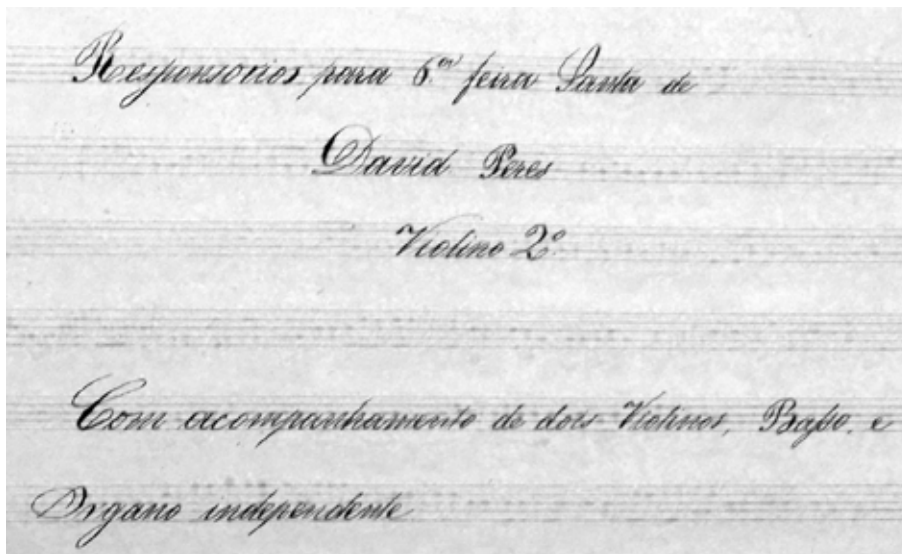 Responsorios para 6.ª feira Santa de
David Peres
Violino 2º
Com acompanhamento de dois Violinos, Baſso, e
Organo independente